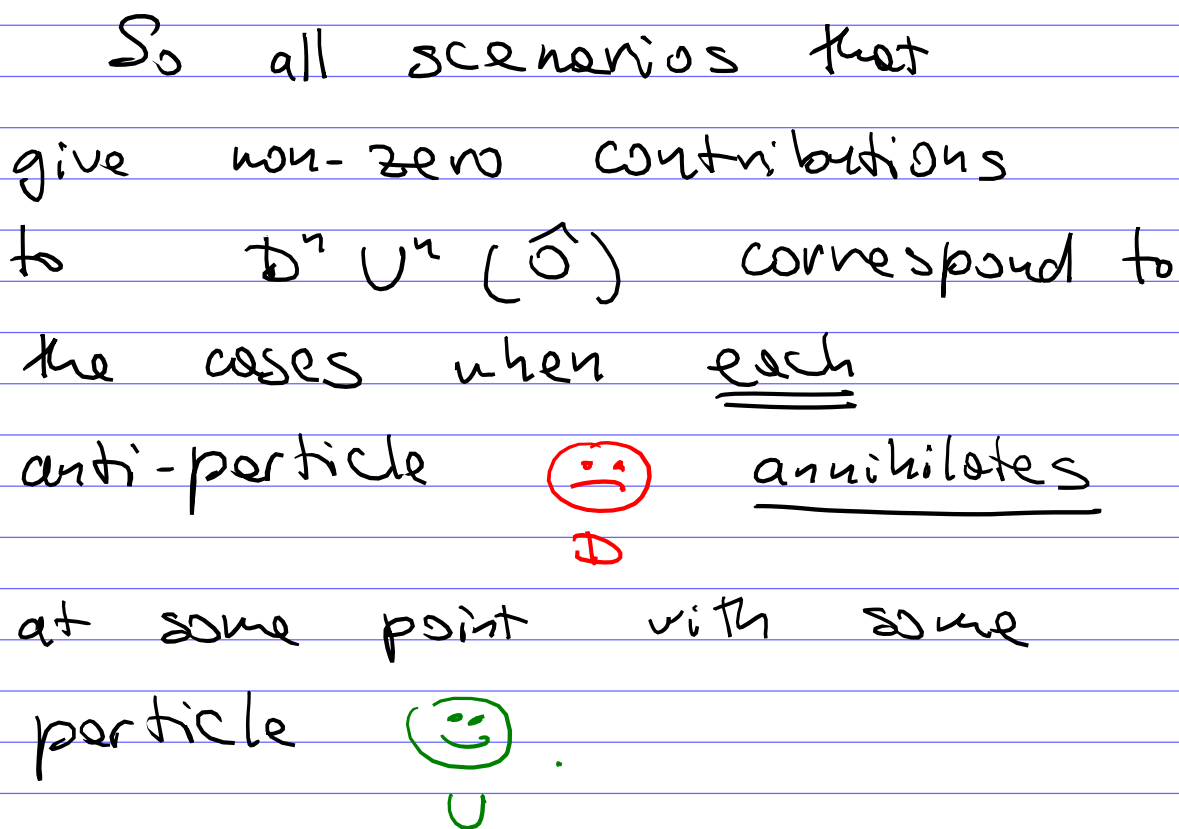 So all scenarios that
give non-zero contributions
to Dⁿ Uⁿ (Ô) correspond to
the cases when each
anti-particle annihilates
D
at some point with some
particle .
U